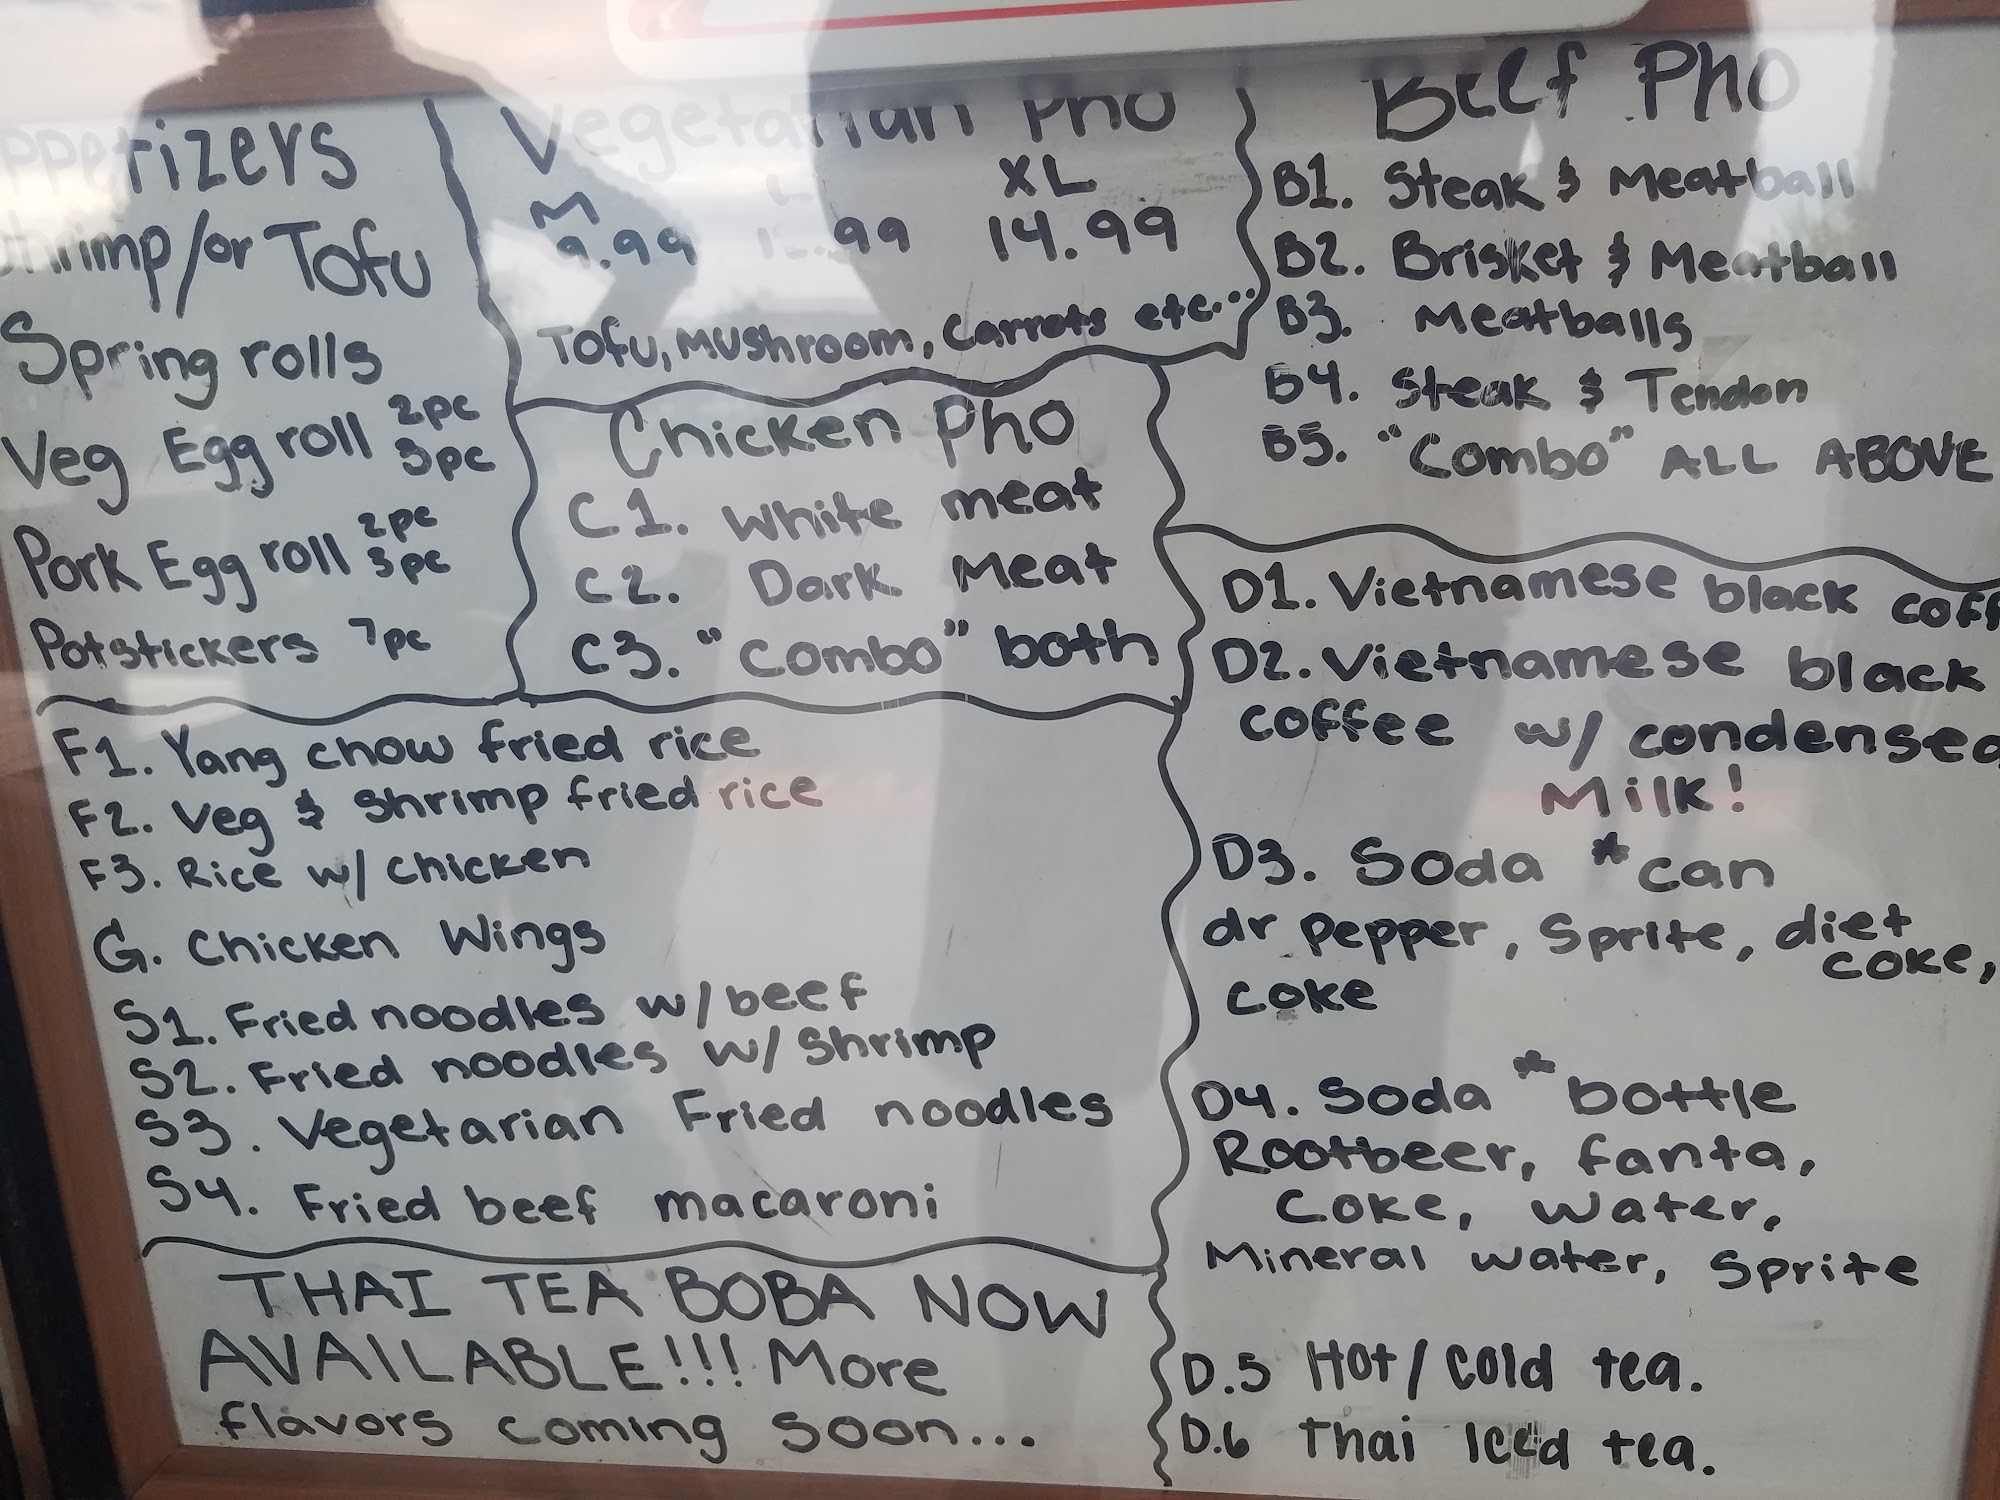 Appetizers
Shrimp/or Tofu
Spring rolls
Veg Egg roll 2pc
3pc
Pork Egg roll 2pc
3pc
Potstickers 7pc
Vegetarian Pho
M L XL
9.99 .99 14.99
Tofu, Mushroom, Carrots etc...
Chicken Pho
C1. White meat
C2. Dark Meat
C3. "Combo" both
Beef Pho
B1. Steak & Meatball
B2. Brisket & Meatball
B3. Meatballs
B4. Steak & Tendon
B5. "Combo" ALL ABOVE
F1. Yang chow fried rice
F2. Veg & Shrimp fried rice
F3. Rice w/ chicken
G. Chicken Wings
S1. Fried noodles w/ beef
S2. Fried noodles w/ Shrimp
S3. Vegetarian Fried noodles
S4. Fried beef macaroni
THAI TEA BOBA NOW
AVAILABLE!!! More
flavors coming soon...
D1. Vietnamese black coff
D2. Vietnamese black
coffee w/ condensed
Milk!
D3. Soda *can
dr pepper, Sprite, diet
coke,
coke
D4. Soda *bottle
Rootbeer, fanta,
Coke, water,
Mineral water, Sprite
D.5 Hot/cold tea.
D.6 Thai Iced tea.